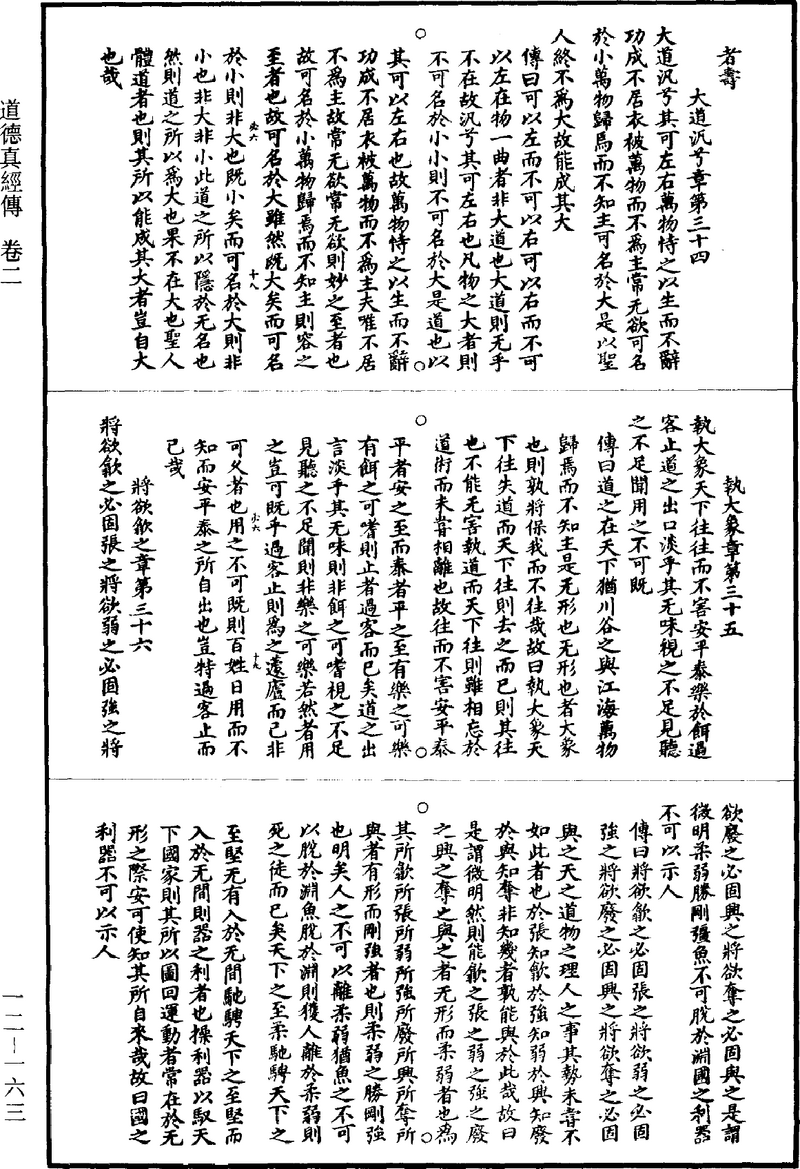 道德真經傳　卷二
者壽
大道汎兮章第三十四
大道汎兮其可左右萬物恃之以生而不辭
功成不居衣被萬物而不爲主常无欲可名
於小萬物歸焉而不知主可名於大是以聖
人終不爲大故能成其大
傳曰可以左而不可以右可以右而不可
以左在物一曲者非大道也大道則无乎
不在故汎兮其可左右也凡物之大者則
不可名於小小則不可名於大是道也以
其可以左右也故萬物恃之以生而不辭
功成不居衣被萬物而不爲主夫唯不居
不爲主故常无欲常无欲則妙之至者也
故可名於小萬物歸焉而不知主則容之
至者也故可名於大雖然既大矣而可名
於小則非大也既小矣而可名於大則非
小也非大非小此道之所以隱於无名也
然則道之所以爲大也果不在大也聖人
體道者也則其所以能成其大者豈自大
也哉
執大象章第三十五
執大象天下往往而不害安平泰樂於餌過
客止道之出口淡乎其无味視之不足見聽
之不足聞用之不可既
傳曰道之在天下猶川谷之與江海萬物
歸焉而不知主是无形也无形也者大象
也則孰將保我而不往哉故曰執大象天
下往失道而天下往則去之而已則其往
也不能无害執道而天下往則雖相忘於
道術而未嘗相離也故往而不害安平泰
平者安之至而泰者平之至有樂之可樂
有餌之可嗜則止者過客而已矣道之出
言淡乎其无味則非餌之可嗜視之不足
見聽之不足聞則非樂之可樂若然者用
之豈可既乎過客止則爲之蘧廬而已非
可久者也用之不可既則百姓日用而不
知而安平泰之所自出也豈特過客止而
已哉
將欲歙之章第三十六
將欲歙之必固張之將欲弱之必固強之將
欲廢之必固興之將欲奪之必固與之是謂
微明柔弱勝剛彊魚不可脫於淵國之利器
不可以示人
傳曰將欲歙之必固張之將欲弱之必固
強之將欲廢之必固興之將欲奪之必固
與之天之道物之理人之事其勢未嘗不
如此者也於張知歙於強知弱於興知廢
於與知奪非知幾者孰能與於此哉故曰
是謂微明然則能歙之張之弱之強之廢
之興之奪之與之者无形而柔弱者也爲
其所歙所張所弱所強所廢所興所奪所
與者有形而剛強者也則柔弱之勝剛強
也明矣人之不可以離柔弱猶魚之不可
以脫於淵魚脫於淵則獲人離於柔弱則
死之徒而已矣天下之至柔馳騁天下之
至堅无有入於无間馳騁天下之至堅而
入於无間則器之利者也操利器以馭天
下國家則其所以圖回運動者常在於无
形之際安可使知其所自來哉故曰國之
利器不可以示人
一二—一六三